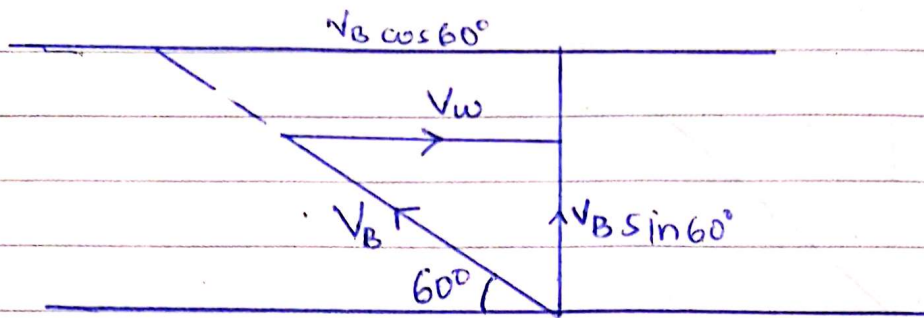 VB cos60°
Vω
VB
VB sin60°
60°